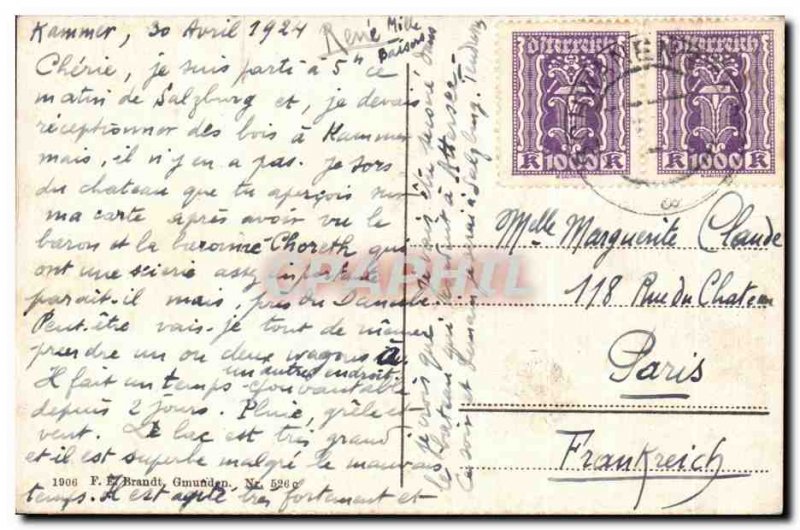 Kammer, 30 Avril 1924
Chérie, je suis parti à 5h ce
matin de Salzburg et, je devais
réceptionner des bois à Kammer
mais, il n'y en a pas. Je sors
du chateau que tu aperçois sur
ma carte après avoir vu le
baron et la baronne Choreth qui
ont une scierie assez importante
parait-il mais, près du Danube.
Peut-être vais-je tout de même
prendre un ou deux wagons à
un autre endroit.
Il fait un temps épouvantable
depuis 2 jours. Pluie, grêle et
vent. Le lac est très grand
et il est superbe malgré le mauvais
temps. Il est agité très fortement et
je crois que je vais être secoué dans
le bateau qui conduit à Attersee.
Ce soir et demain serai à Salzburg. Tendresses
René Mille
Baisers
Österreich
1000 K
Österreich
1000 K
Melle Marguerite Claude
118 Rue du Chateau
Paris
Frankreich
CPAPHIL
1906 F. E. Brandt, Gmunden. Nr. 526c